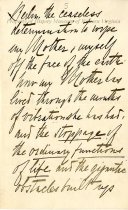 the ceaseless
determination to wipe
my Mother & myself
off the face of the earth
how my Mother has
lived through the months
of she has had,
and the stoppage of
the ordinary functions
of life, and the gigantic
obstacles built up